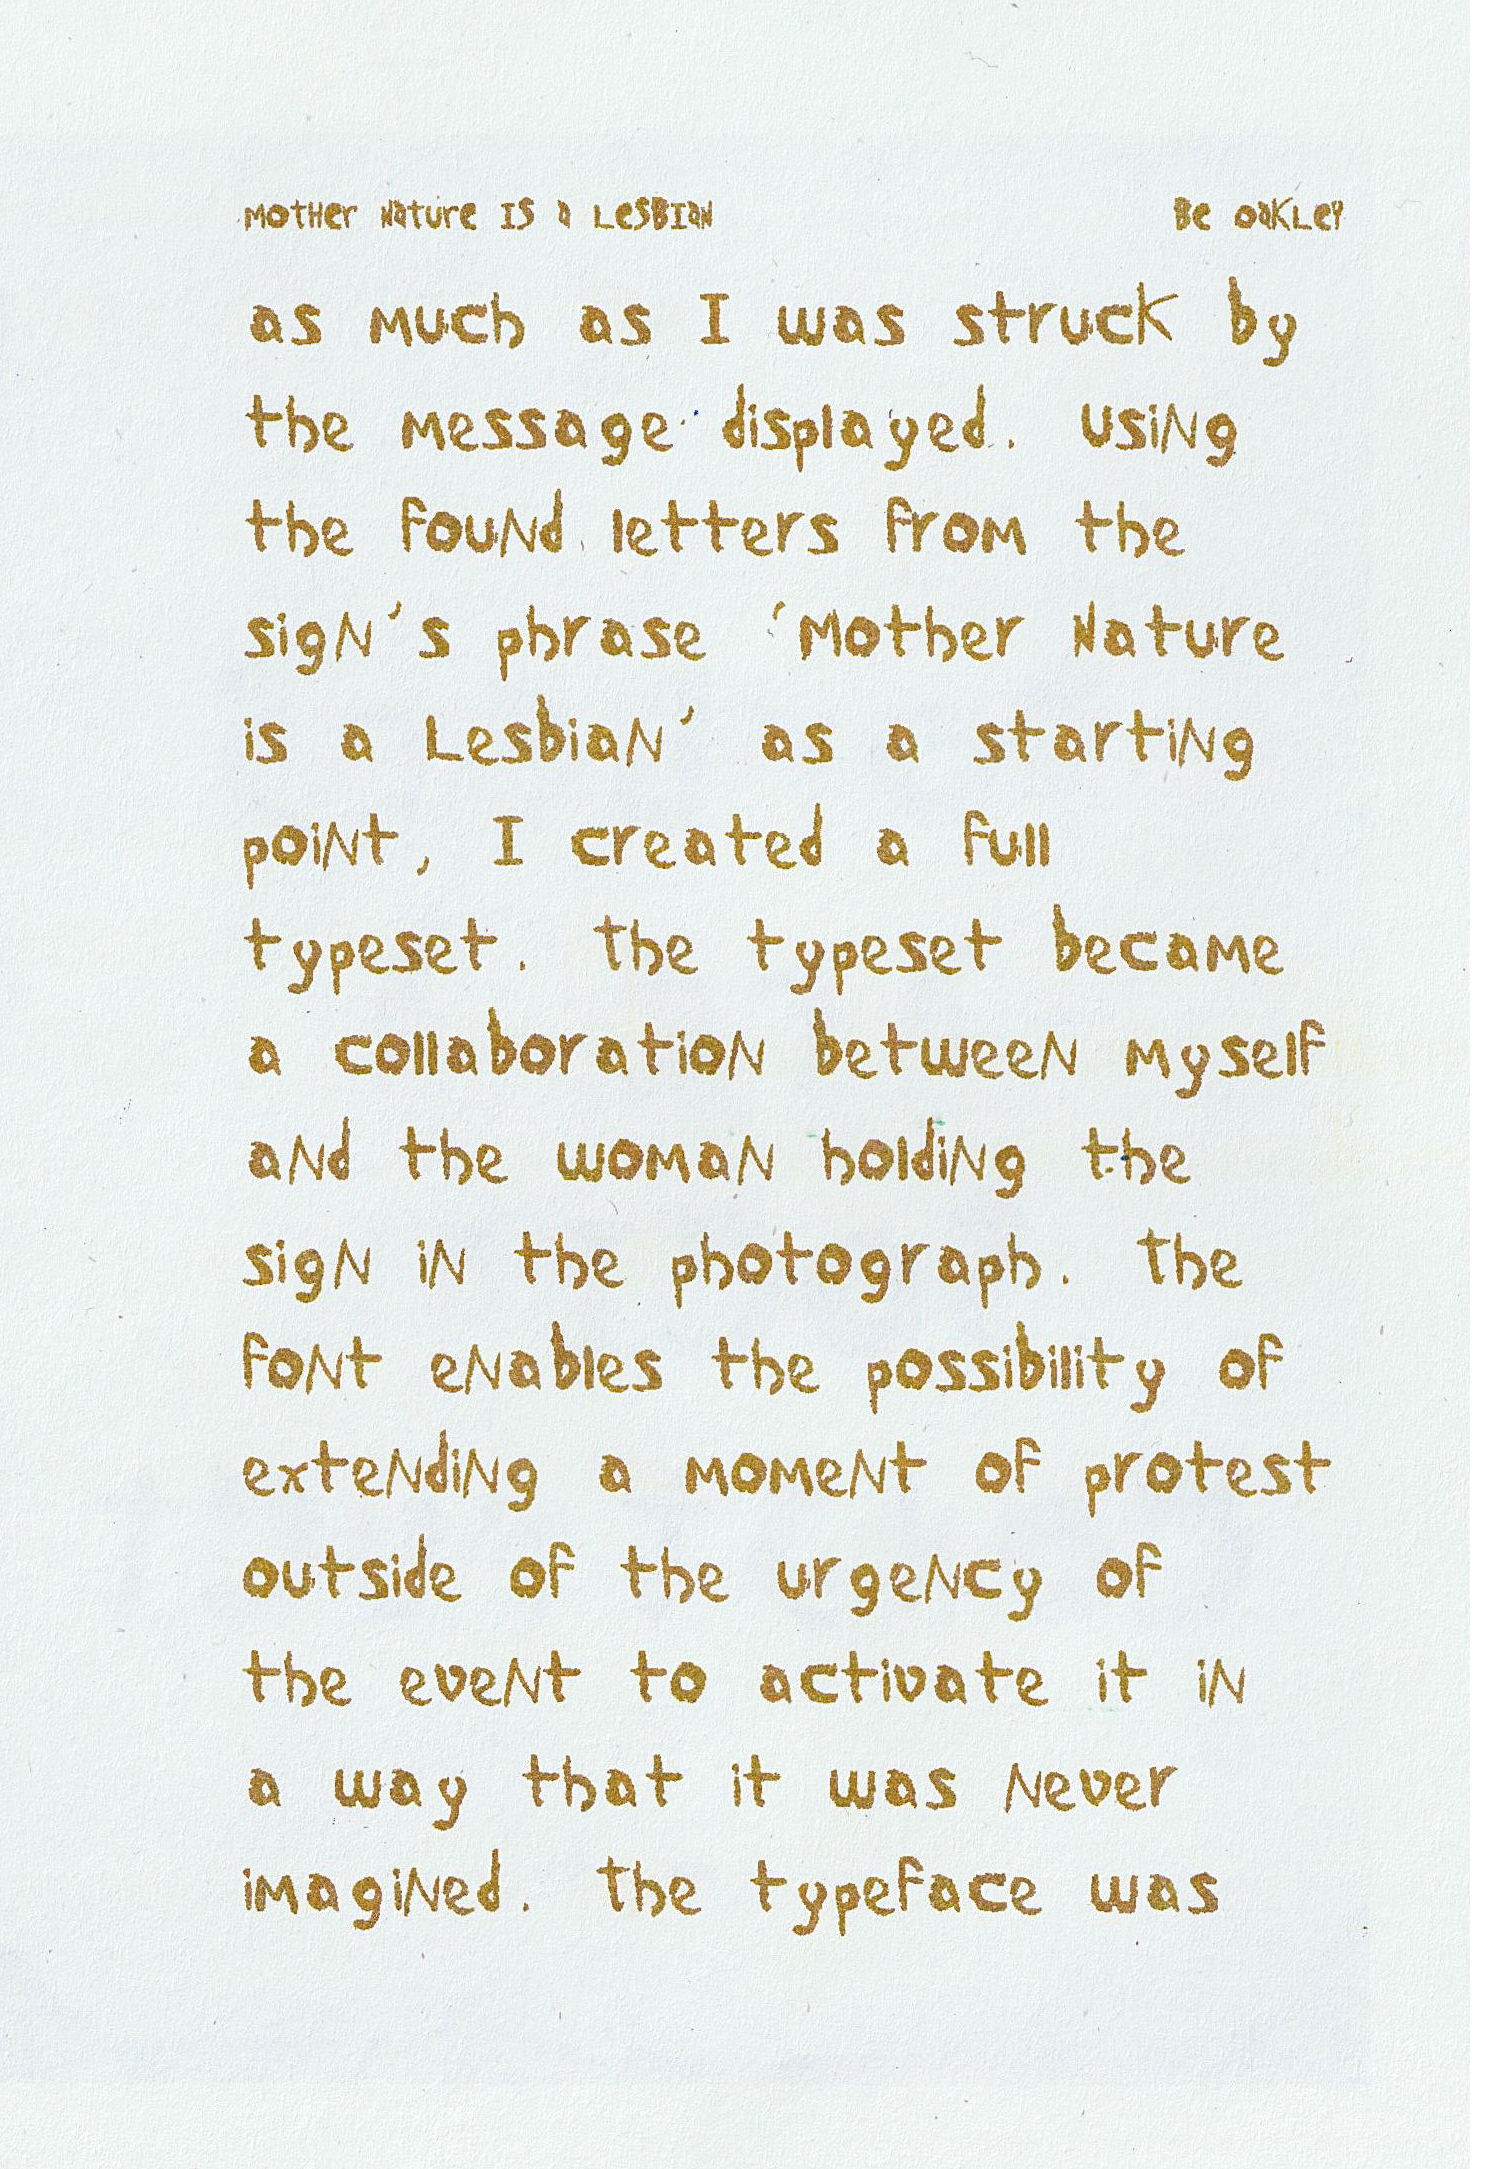 Mother Nature Is a Lesbian Be Oakley
as much as I was struck by
the message displayed. Using
the found letters from the
sign's phrase 'Mother Nature
is a Lesbian' as a starting
point, I created a full
typeset. The typeset became
a collaboration between myself
and the woman holding the
sign in the photograph. The
font enables the possibility of
extending a moment of protest
outside of the urgency of
the event to activate it in
a way that it was never
imagined. The typeface was